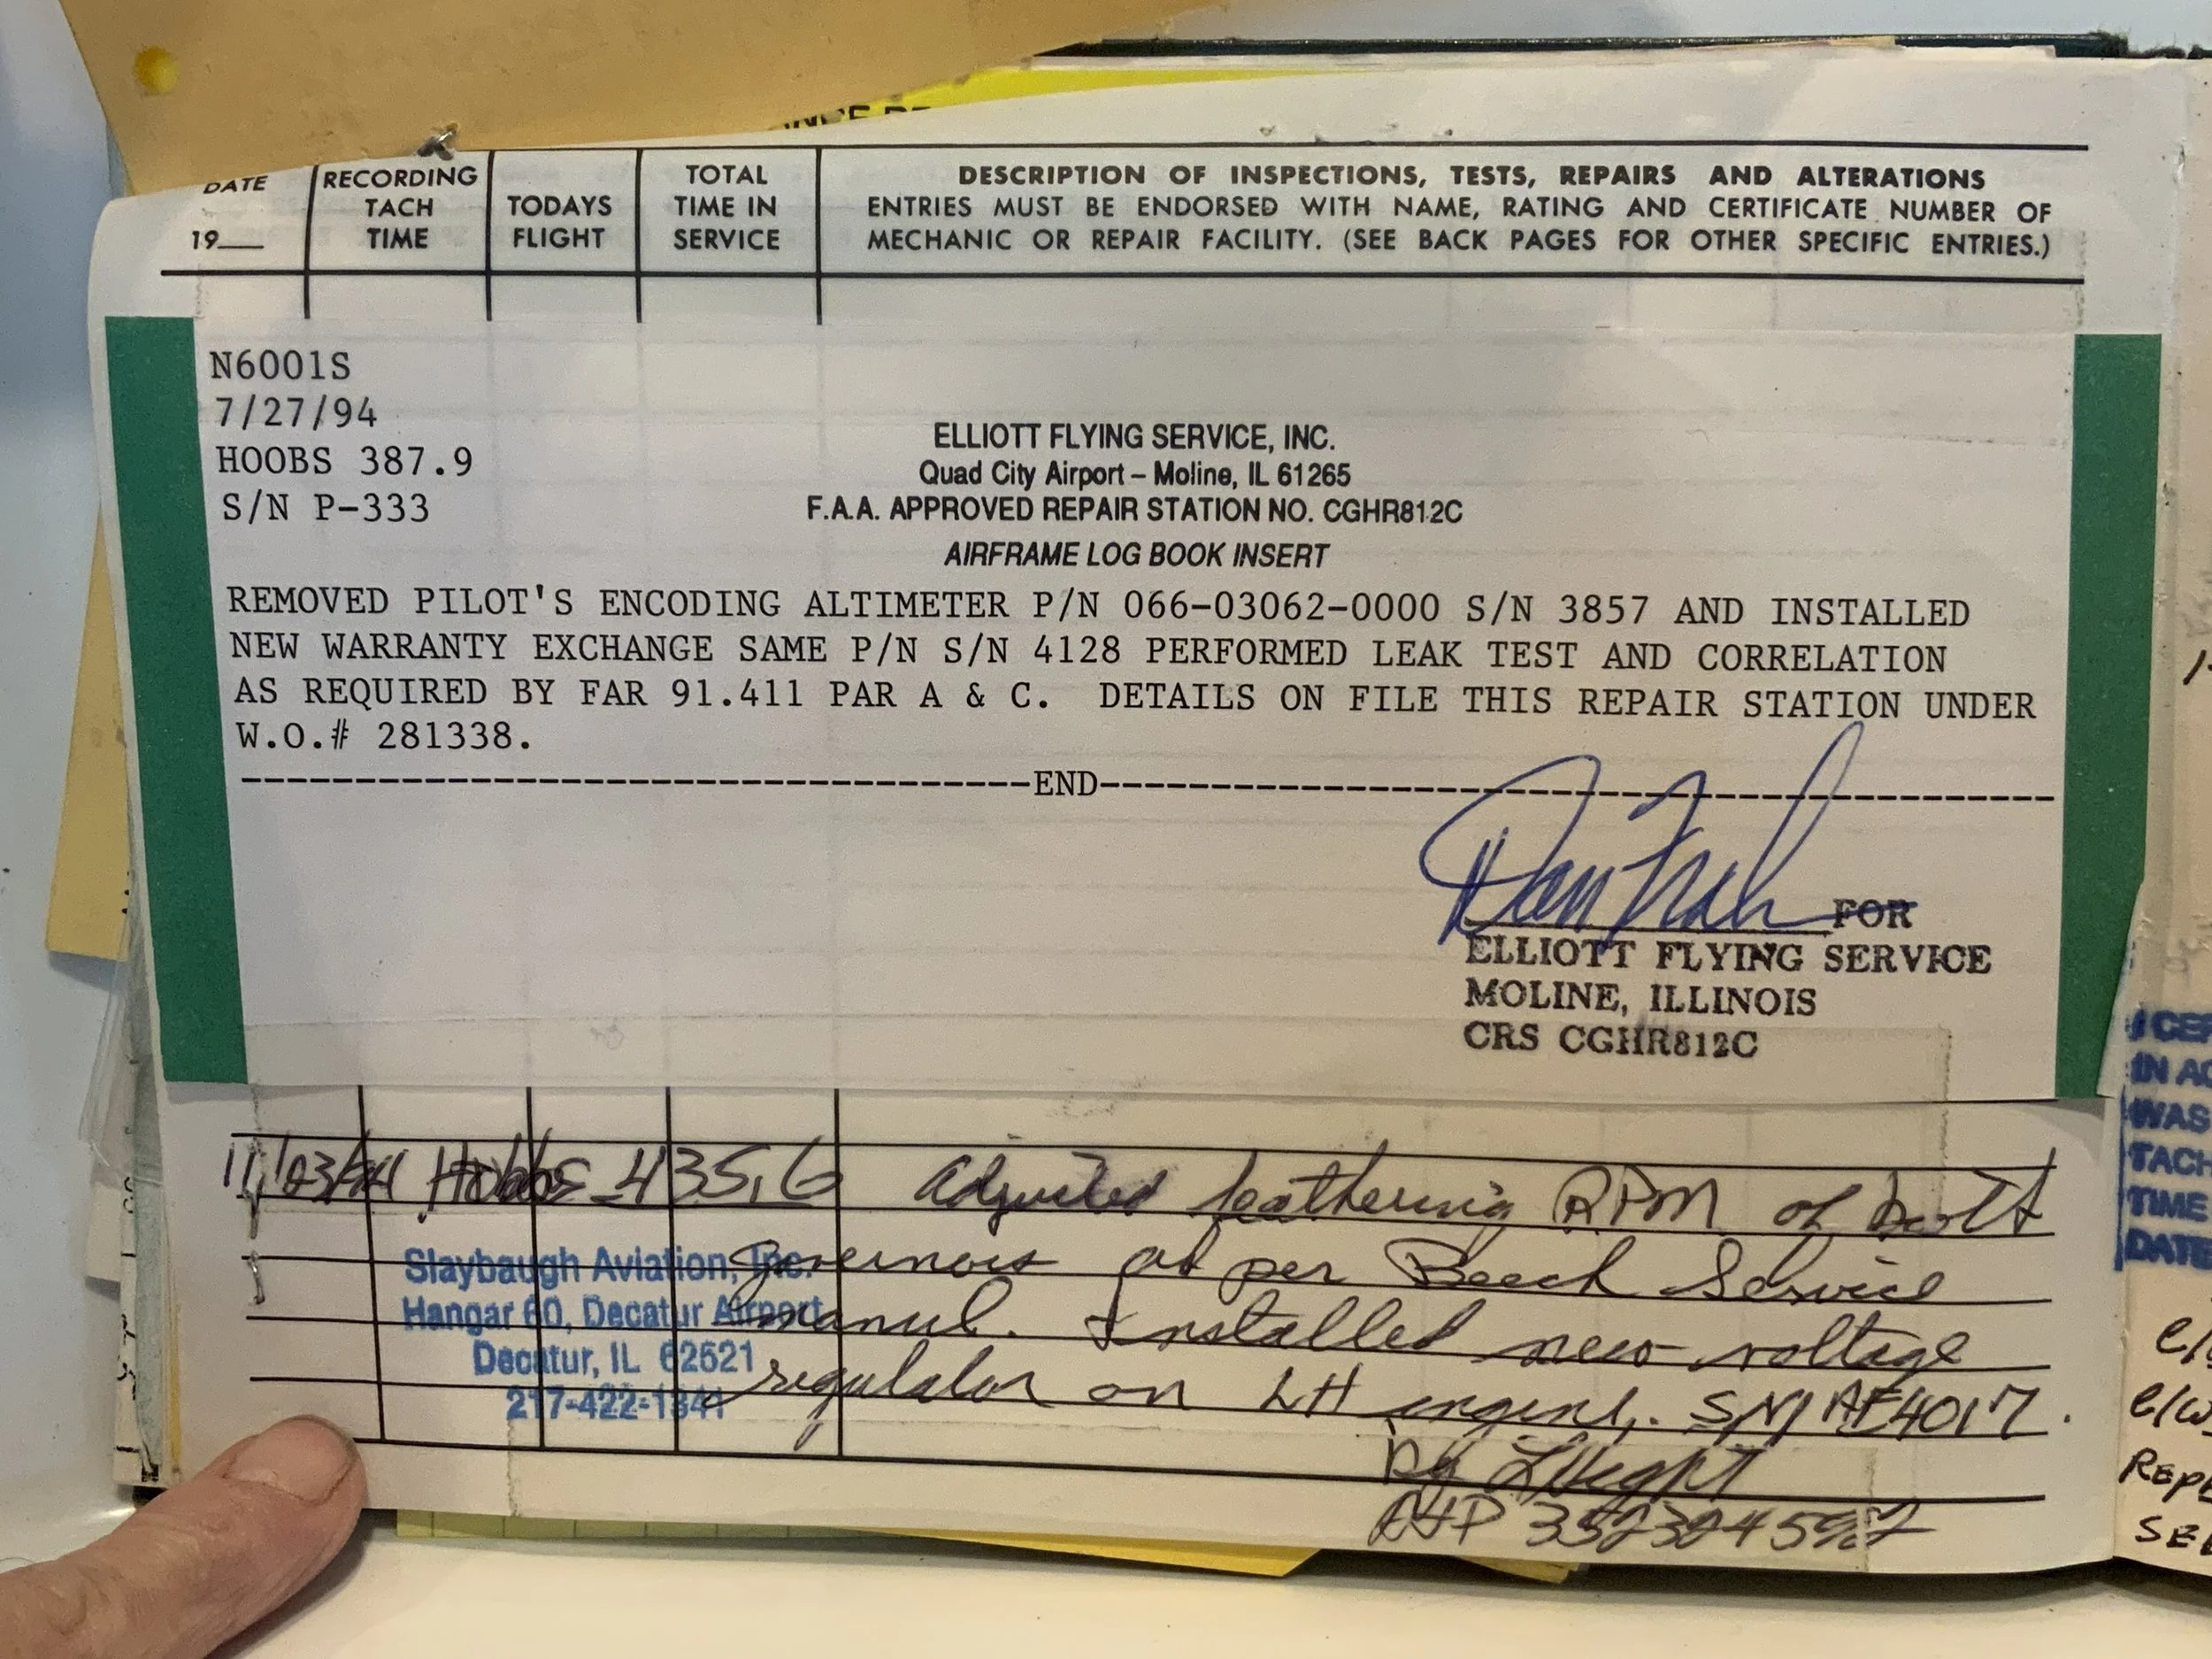 DATE
19___
RECORDING
TACH
TIME
TODAYS
FLIGHT
TOTAL
TIME IN
SERVICE
DESCRIPTION OF INSPECTIONS, TESTS, REPAIRS AND ALTERATIONS
ENTRIES MUST BE ENDORSED WITH NAME, RATING AND CERTIFICATE NUMBER OF
MECHANIC OR REPAIR FACILITY. (SEE BACK PAGES FOR OTHER SPECIFIC ENTRIES.)
N6001S
7/27/94
HOOBS 387.9
S/N P-333
ELLIOTT FLYING SERVICE, INC.
Quad City Airport – Moline, IL 61265
F.A.A. APPROVED REPAIR STATION NO. CGHR812C
AIRFRAME LOG BOOK INSERT
REMOVED PILOT'S ENCODING ALTIMETER P/N 066-03062-0000 S/N 3857 AND INSTALLED
NEW WARRANTY EXCHANGE SAME P/N S/N 4128 PERFORMED LEAK TEST AND CORRELATION
AS REQUIRED BY FAR 91.411 PAR A & C. DETAILS ON FILE THIS REPAIR STATION UNDER
W.O.# 281338.
END
FOR
ELLIOTT FLYING SERVICE
MOLINE, ILLINOIS
CRS CGHR812C
11/03/94 Hobbs 435.6 Adjusted feathering RPM of both
governors as per Beech Service
manul. Installed new voltage
regulator on LH engine, SN AF4017.
Slaybaugh Aviation, Inc.
Hangar 60, Decatur Airport
Decatur, IL 62521
217-422-1341
A&P
IN AC
WAS
TACH
TIME
DATE